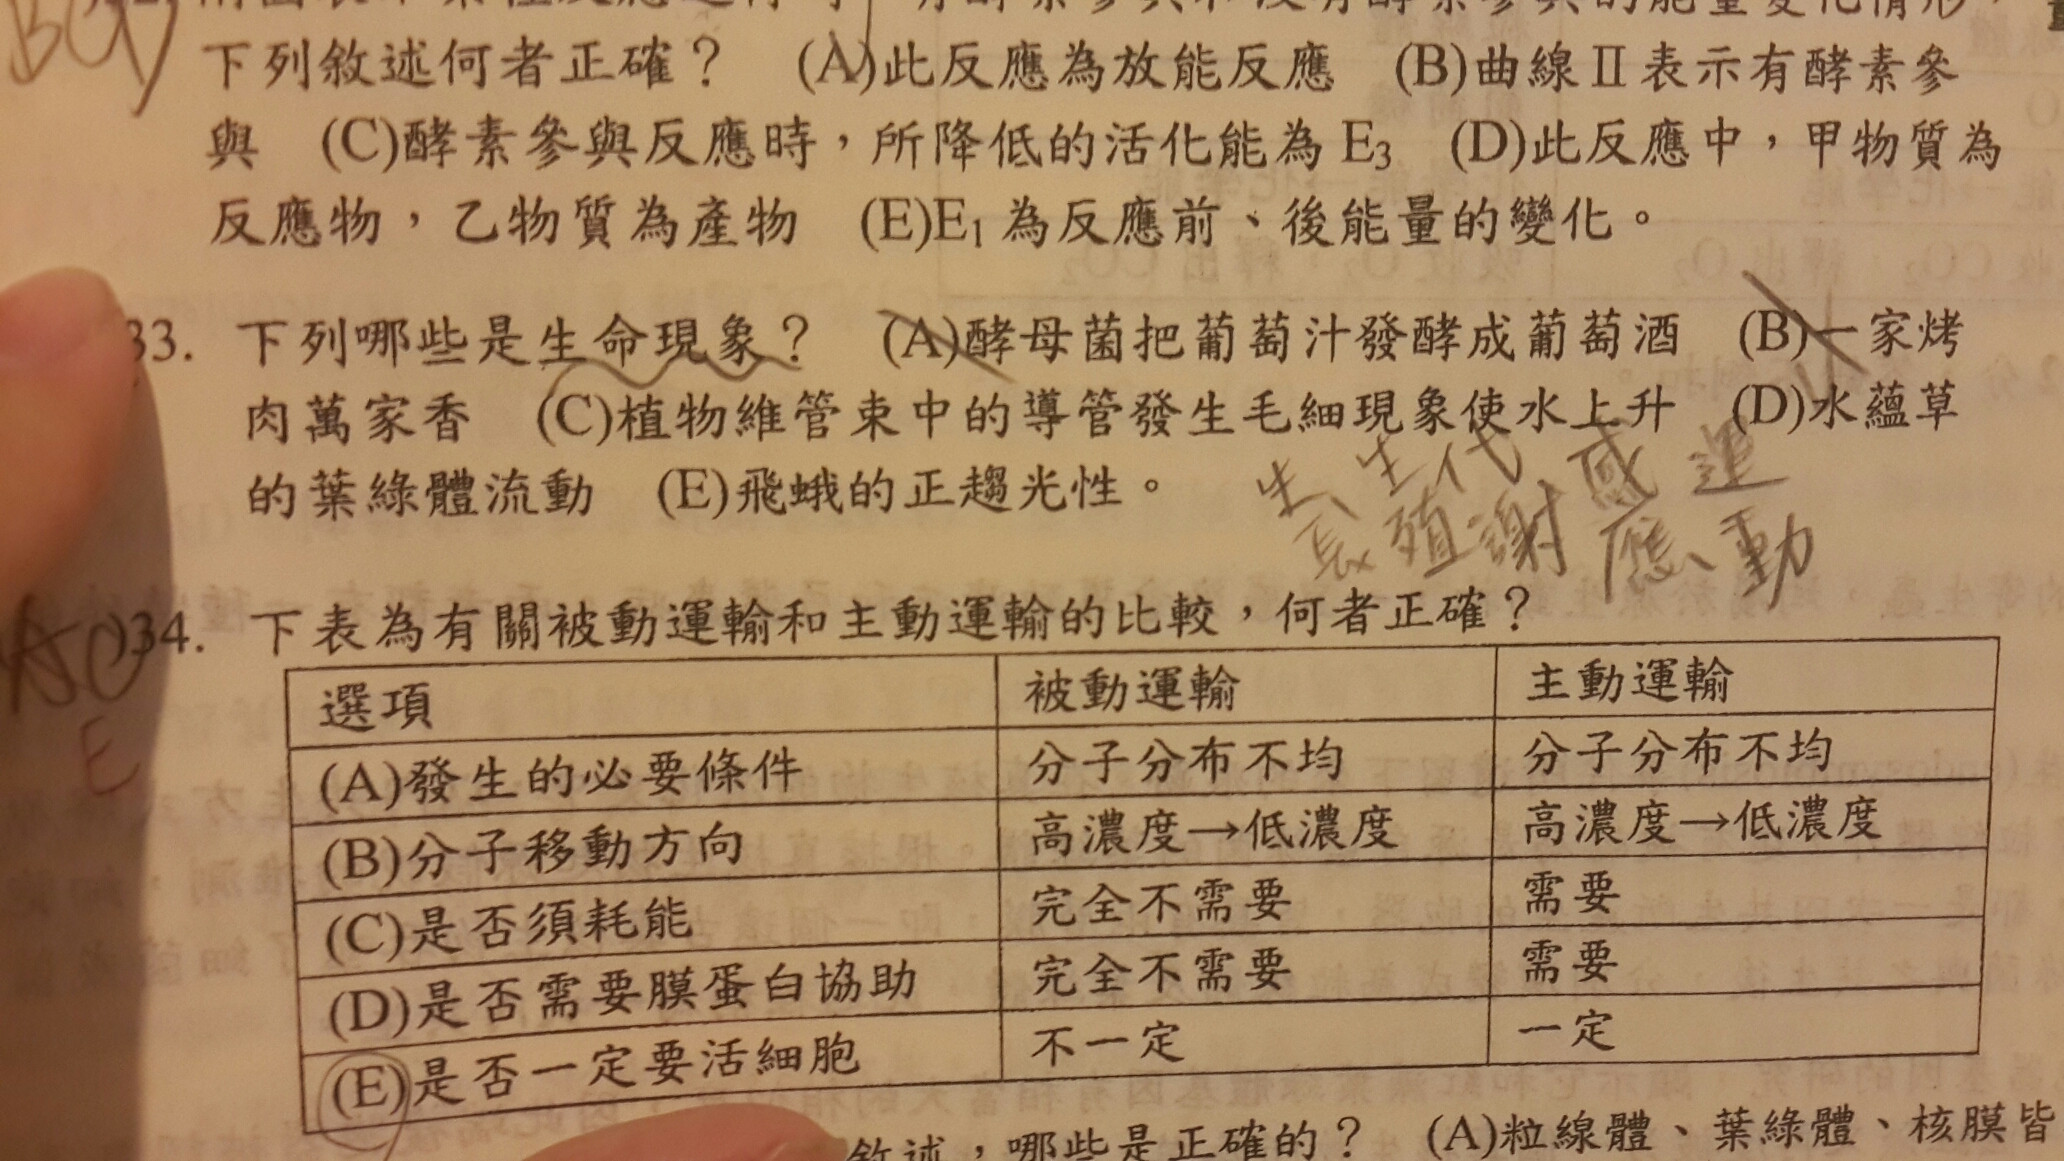 下列敘述何者正確？ (A)此反應為放能反應 (B)曲線Ⅱ表示有酵素參
與 (C)酵素參與反應時，所降低的活化能為 E₃ (D)此反應中，甲物質為
反應物，乙物質為產物 (E)E₁ 為反應前、後能量的變化。
33. 下列哪些是生命現象？ (A)酵母菌把葡萄汁發酵成葡萄酒 (B)一家烤
肉萬家香 (C)植物維管束中的導管發生毛細現象使水上升 (D)水蘊草
的葉綠體流動 (E)飛蛾的正趨光性。
生長、生殖、代謝、感應、運動
34. 下表為有關被動運輸和主動運輸的比較，何者正確？
E
選項 被動運輸 主動運輸
(A)發生的必要條件 分子分布不均 分子分布不均
(B)分子移動方向 高濃度→低濃度 高濃度→低濃度
(C)是否須耗能 完全不需要 需要
(D)是否需要膜蛋白協助 完全不需要 需要
(E)是否一定要活細胞 不一定 一定
敘述，哪些是正確的？ (A)粒線體、葉綠體、核膜皆